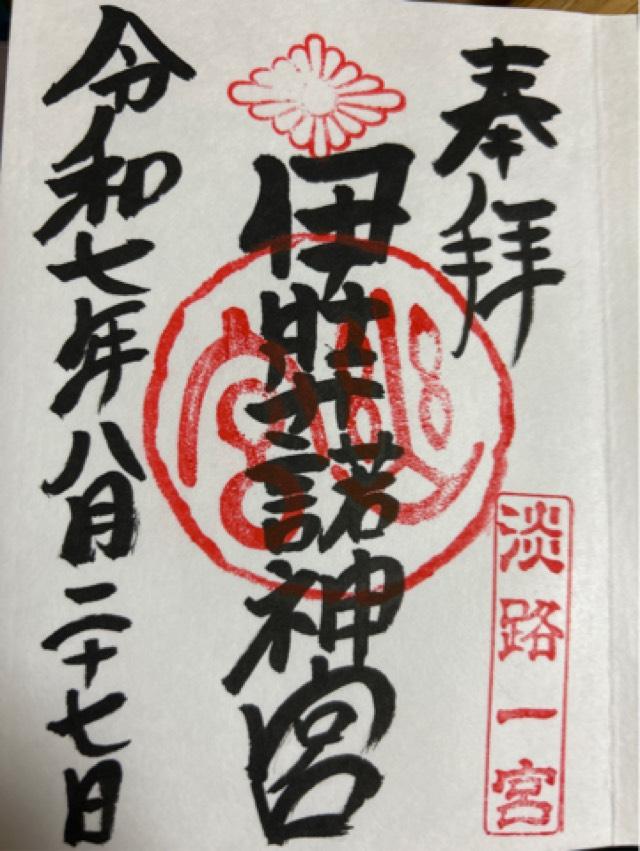 奉拝
淡路一宮
伊弉諾神宮
令和七年八月二十七日